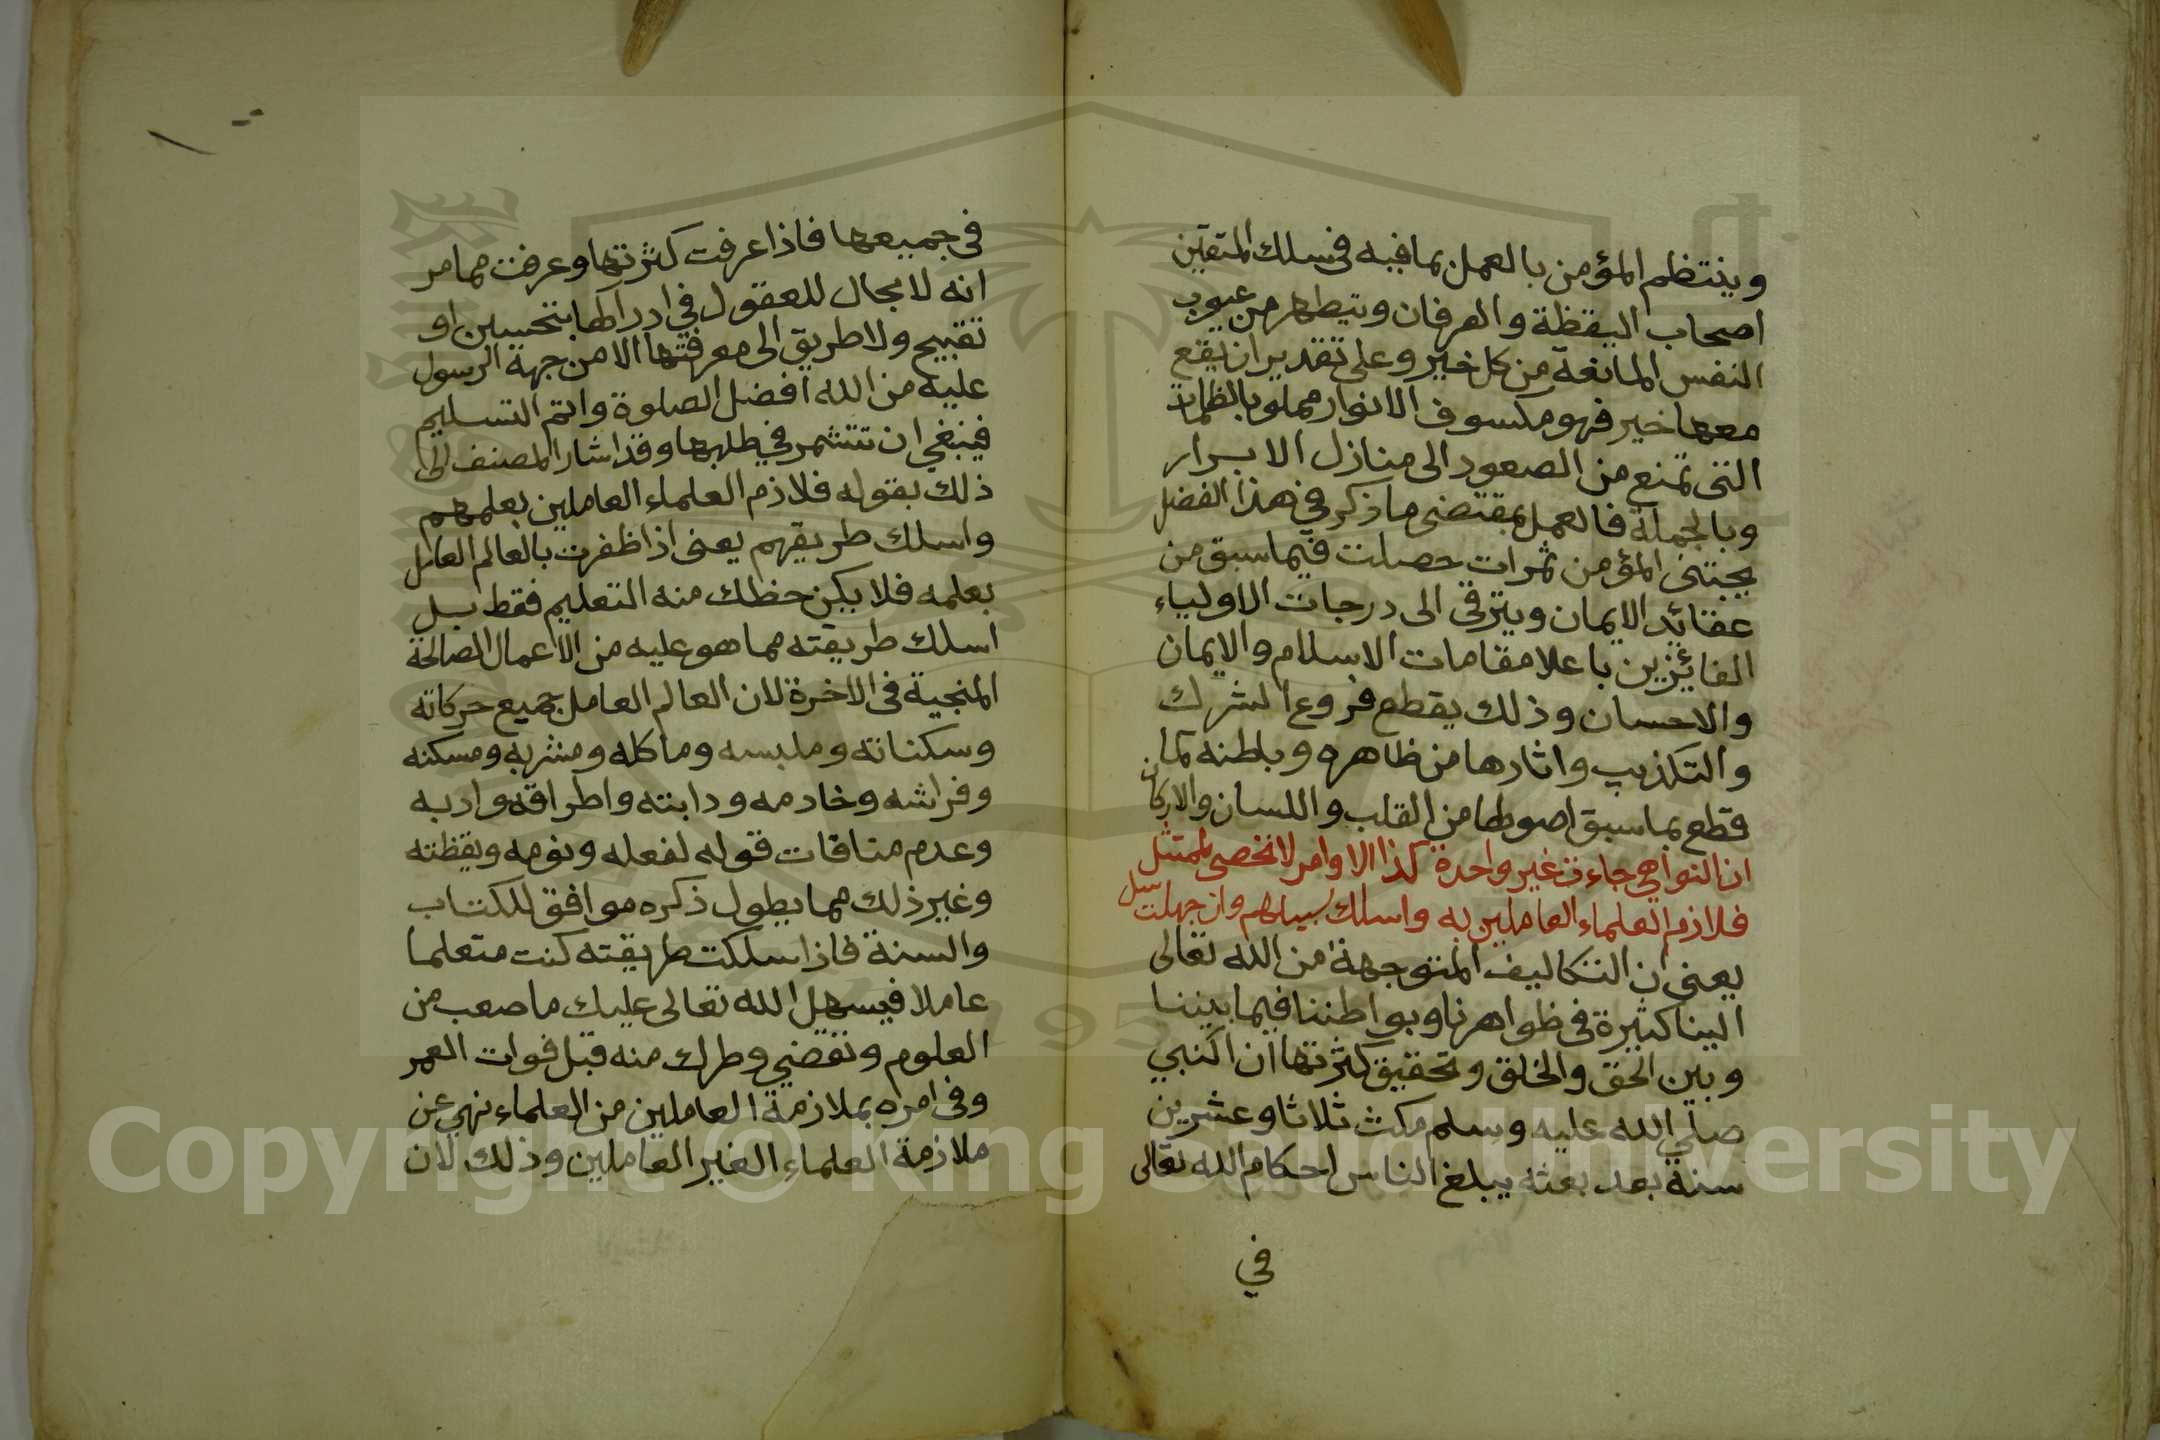 وينتظم المؤمن بالعمل بما فيه في سلك المتقين
اصحاب اليقظة والعرفان ويتطهر من عيوب
النفس المانعة من كل خير وعلى تقدير ان يقع
معها خير فهو مكسوف الانوار مملو بالظلمات
التي تمنع من الصعود الى منازل الابرار
وبالجملة فالعمل بمقتضى ما ذكر في هذا الفصل
يجتنى المؤمن ثمرات حصلت فيما سبق من
عقائد الايمان ويترقى الى درجات الاولياء
الفائزين باعلا مقامات الاسلام والايمان
والاحسان وذلك يقطع فروع الشرك
والتكذيب واثارها من ظاهره وباطنه كما
قطع بما سبق اصولها من القلب واللسان والاركان
ان النواهي جاءت غير واحدة كذا الاوامر لا تحصى لممتثل
فلازم العلماء العاملين به واسلك سبيلهم وان جهلت سل
يعني ان التكاليف المتوجهة من الله تعالى
الينا كثيرة في ظواهرنا وبواطننا فيما بيننا
وبين الحق والخلق وتحقيق كثرتها ان النبي
صلى الله عليه وسلم مكث ثلاثا وعشرين
سنة بعد بعثه يبلغ الناس احكام الله تعالى
في
في جميعها فاذا عرفت كثرتها وعرفت مما مر
انه لا مجال للعقول في ادراكها بتحسين او
تقبيح ولا طريق الى معرفتها الا من جهة الرسول
عليه من الله افضل الصلوة واتم التسليم
فينبغي ان تتشمر في طلبها وقد اشار المصنف الى
ذلك بقوله فلازم العلماء العاملين بعلمهم
واسلك طريقهم يعنى اذا ظفرت بالعالم العامل
بعلمه فلا يكن حظك منه التعليم فقط بل
اسلك طريقته مما هو عليه من الاعمال الصالحة
المنجية في الاخرة لان العالم العامل جميع حركاته
وسكناته وملبسه وماكله ومشربه ومسكنه
وفراشه وخادمه ودابته واطراقه وادبه
وعدم منافات قوله لفعله ونومه ويقظته
وغير ذلك مما يطول ذكره موافق للكتاب
والسنة فاذا سلكت طريقته كنت متعلما
عاملا فيسهل الله تعالى عليك ما صعب من
العلوم وتقضي وطرك منه قبل فوات العمر
وفي امره بملازمة العاملين من العلماء نهي عن
ملازمة العلماء الغير العاملين وذلك لان
Copyright © King Saud University